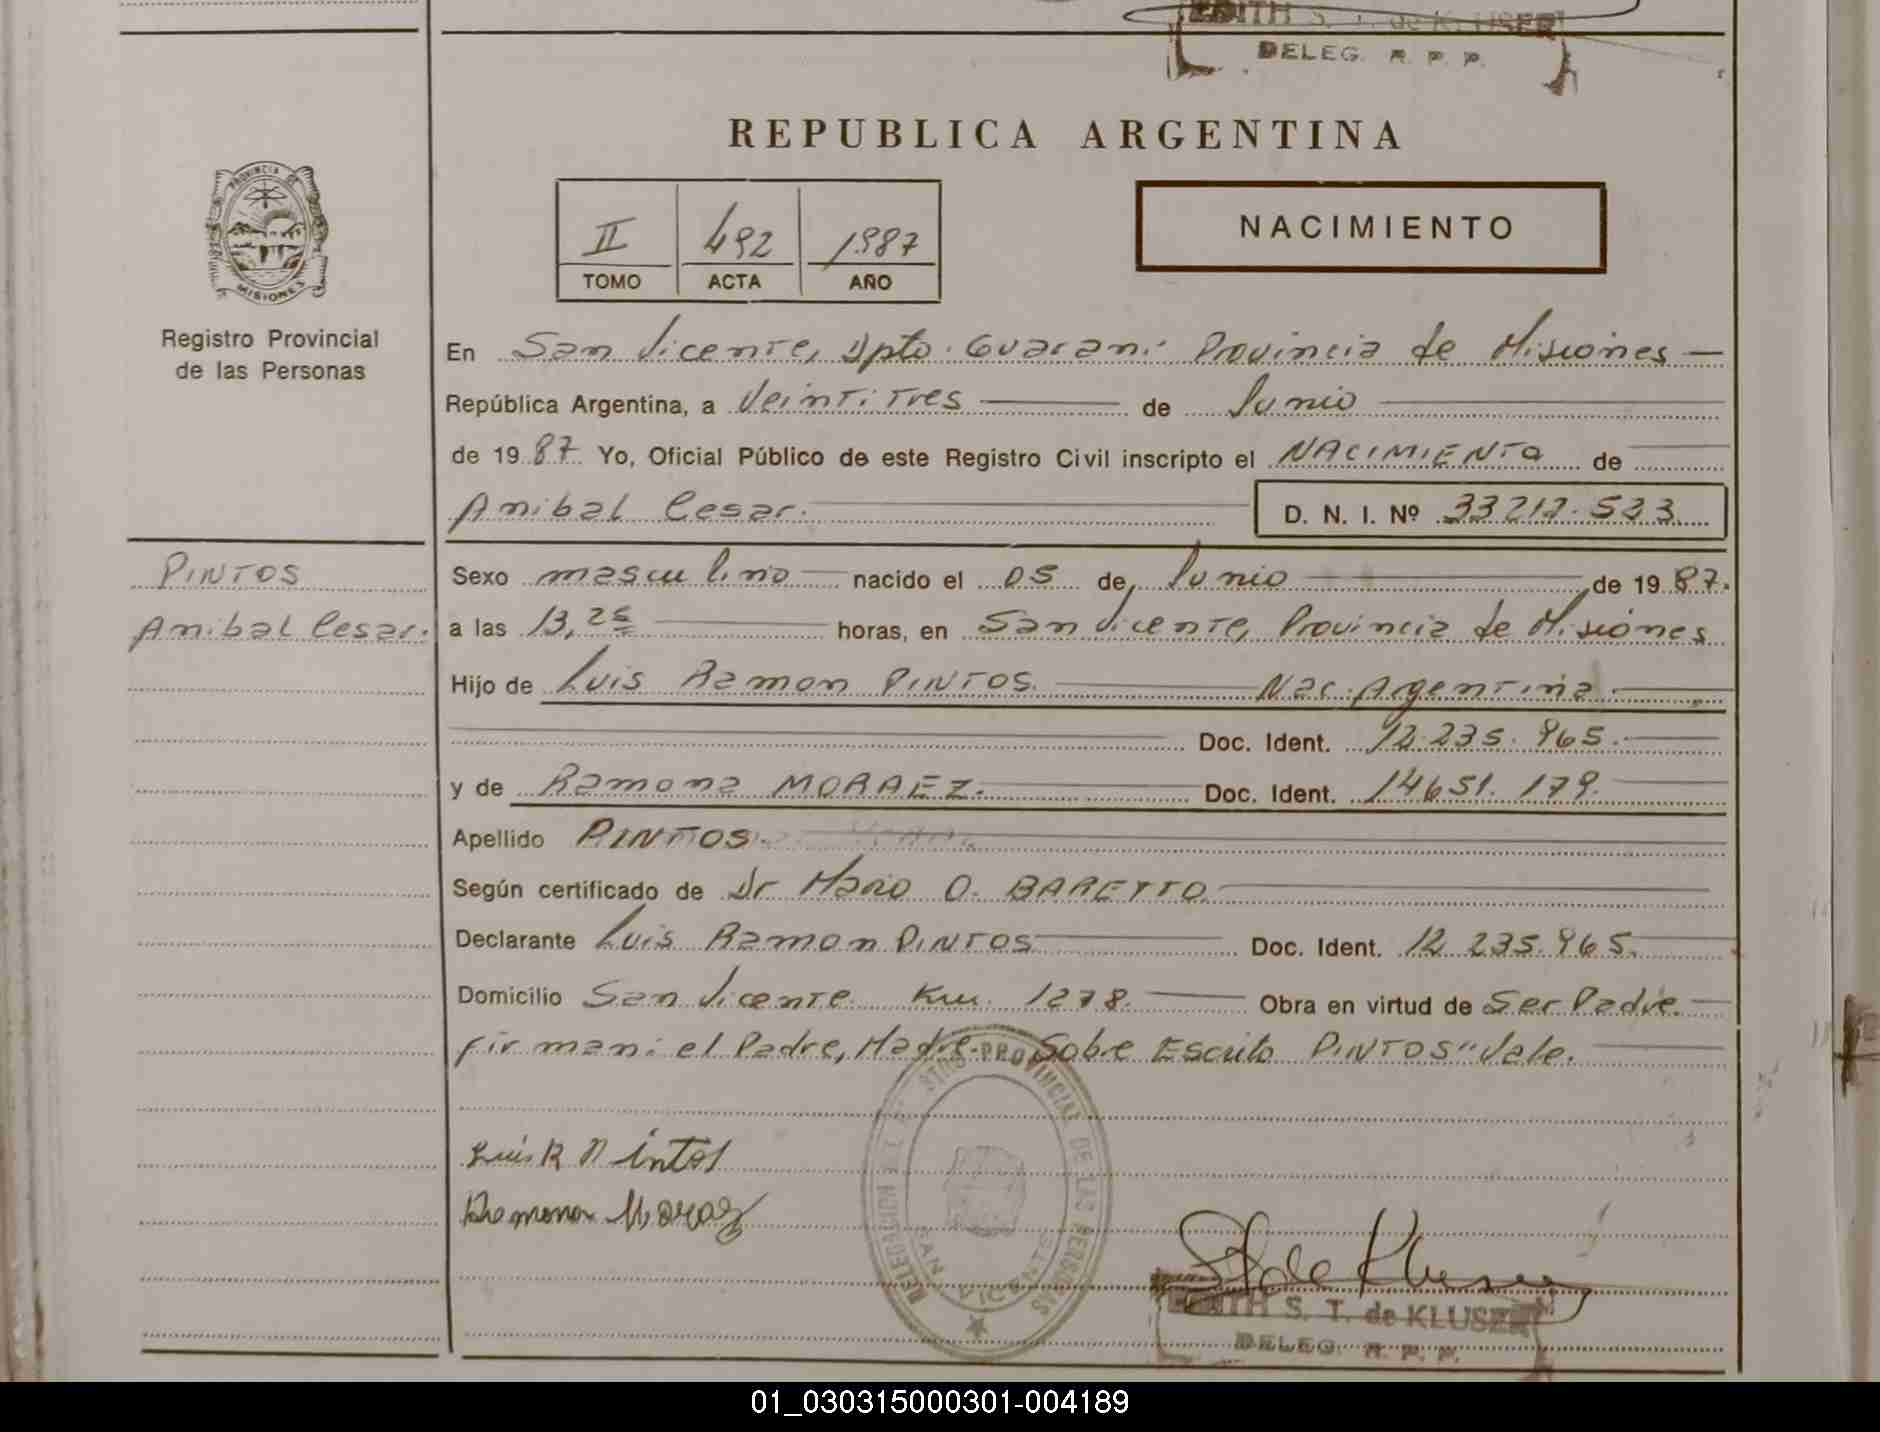 EDITH S. T. de KLUSER
DELEG. R. P. P.
REPUBLICA ARGENTINA
PROVINCIA DE
MISIONES
Registro Provincial
de las Personas
II 492 1987
TOMO ACTA AÑO
NACIMIENTO
En San Vicente, Dpto. Guarani Provincia de Misiones —
República Argentina, a Veintitres — de Junio —
de 1987 Yo, Oficial Público de este Registro Civil inscripto el NACIMIENTO de
Anibal Cesar. — D. N. I. Nº 33217.533
PINTOS
Anibal Cesar.
Sexo masculino — nacido el 05 de Junio — de 1987.
a las 13,25 — horas, en San Vicente, Provincia de Misiones
Hijo de Luis Ramon PINTOS. — Nac. Argentina. —
Doc. Ident. 12.235.965. —
y de Ramona MORAEZ. — Doc. Ident. 14651.179. —
Apellido PINTOS. —
Según certificado de Dr Mario O. BAREYTO. —
Declarante Luis Ramon PINTOS — Doc. Ident. 12.235.965. —
Domicilio San Vicente Km. 1278. — Obra en virtud de Ser Padre. —
firman: el Padre, Madre. Sobre Escrito PINTOS" Vale. —
Luis R Pintos
Ramona Moraez
PROVINCIAL DE LAS PERSONAS
SAN VICENTE
S T de Kluser
EDITH S. T. de KLUSER
DELEG. R. P. P.
01_030315000301-004189